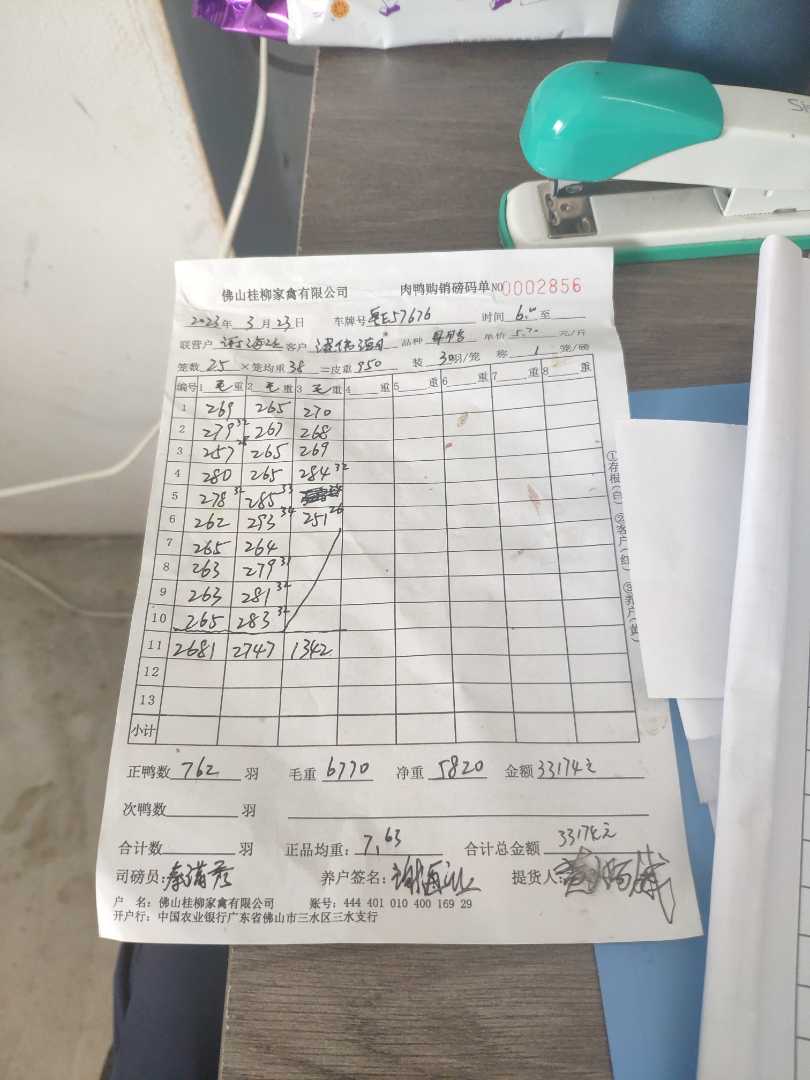 佛山桂柳家禽有限公司 肉鸭购销磅码单 NO 0002856
2023年 3月 23日 车牌号 粤E57676 时间 6. 至
联营户 客户 品种 单价 5.70 元/斤
笼数 25 ×笼均重 38 =皮重 950 装 30 羽/笼 称 1 笼/磅
编号 1 毛 重 2 毛 重 3 毛 重 4 重 5 重 6 重 7 重 8 重
1 269 265 270
2 279 32 267 268
3 257 28 265 269
4 280 265 284 32
5 278 32 285 33
6 262 293 34 251 26
7 265 264
8 263 279 31
9 263 281 32
10 265 283 32
11 2681 2747 1342
12
13
小计
①存根(白) ②客户(红) ③养户(黄)
正鸭数 762 羽 毛重 6770 净重 5820 金额 33174元
次鸭数 羽
合计数 羽 正品均重: 7.63 合计总金额 33174元
司磅员: 秦满彦 养户签名: 提货人:
户 名: 佛山桂柳家禽有限公司 账号: 444 401 010 400 169 29
开户行: 中国农业银行广东省佛山市三水区三水支行